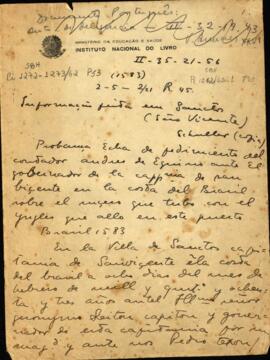 Documento Português:
II-32-14, 43
MINISTÉRIO DA EDUCAÇÃO E SAÚDE
INSTITUTO NACIONAL DO LIVRO
II-35-21-56
SBH
Li 1272-1273/62 P53 (1583)
2-5-2/21 R 45
Informação feita em Sanctos
(São Vicente)
Schuller (copia)
Probanza Echa de pedimiento del
contador andres de Eguino ante El
gobernador de la cappnia de san
bigente en la costa del Brasil
sobre el suçeso que tubo con el
yngles que allo en este puerto
Brasil 1583
En la Villa de Sanctos capi
tania de Sanvigente de la costa
del brasil a ocho dias del mes de
hebrero de mill y qui° y ochen
ta y tres años antel Illmo señor
geronymo Leitan capitan y gover
nador de esta capitania por su
mag.d y ante nos Pedro